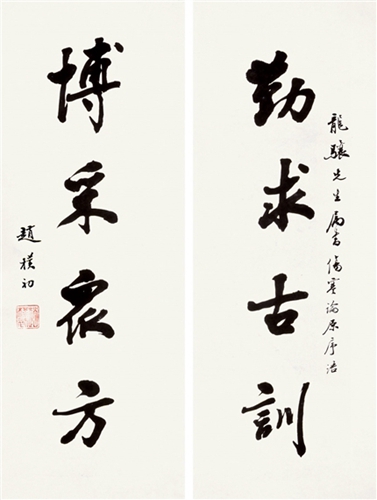 勤求古訓
龍驤先生屬書傷寒論原序語
博采衆方
趙樸初